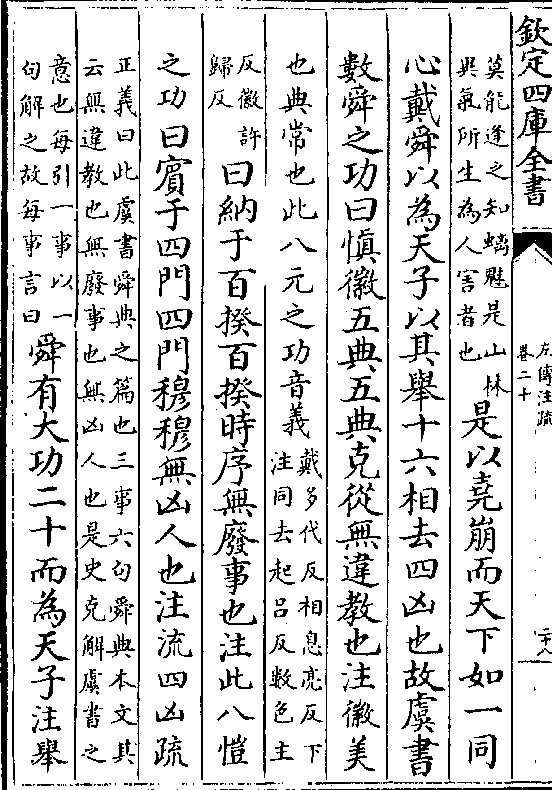 欽定四庫全書
左傳注疏
卷二十
二十八
莫能逢之知螭魅是山林
異氣所生為人害者也
是以堯崩而天下如一同
心戴舜以為天子以其舉十六相去四凶也故虞書
數舜之功曰慎徽五典五典克從無違教也注徽美
也典常也此八元之功音義
戴多代反相息亮反下
注同去起呂反數色主
反徽許
歸反
曰納于百揆百揆時序無廢事也注此八愷
之功曰賓于四門四門穆穆無凶人也注流四凶疏
正義曰此虞書舜典之篇也三事六句舜典本文其
云無違教也無廢事也無凶人也是史克解虞書之
意也每引一事以一
句解之故每事言曰
舜有大功二十而為天子注舉